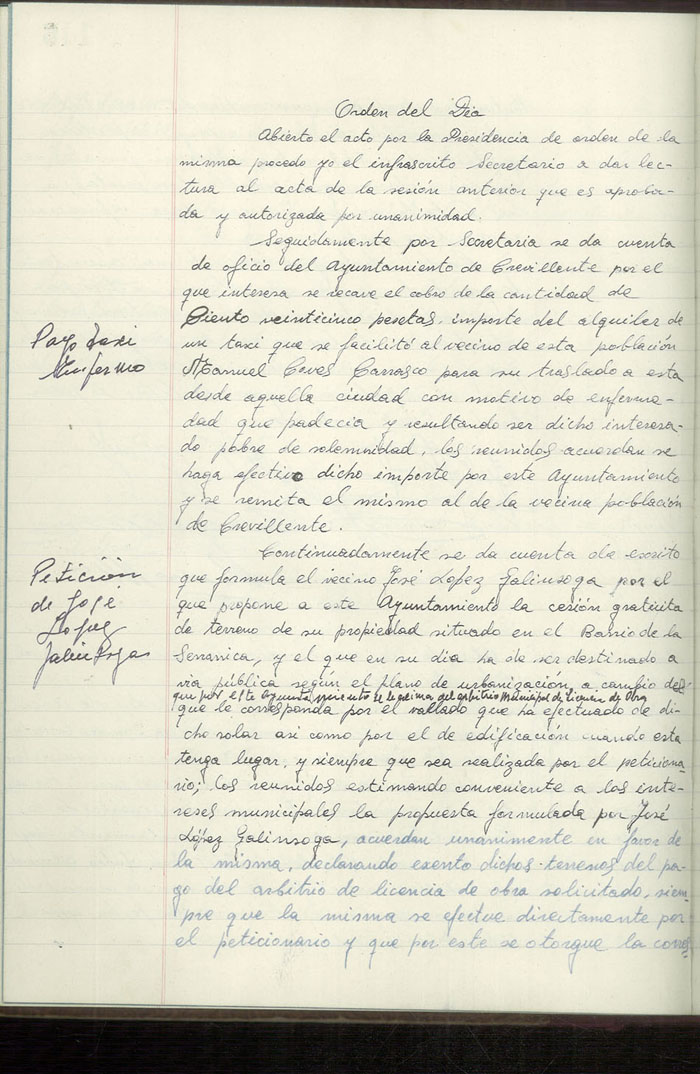 Orden del Dia
Abierto el acto por la Presidencia de orden de la
misma procedo yo el infrascrito Secretario a dar lec-
tura al acta de la sesión anterior que es aproba-
da y autorizada por unanimidad.
Seguidamente por Secretaria se da cuenta
de oficio del Ayuntamiento de Crevillente por el
que interesa se recave el cobro de la cantidad de
Pago Taxi
Enfermo
Ciento veinticinco pesetas, importe del alquiler de
un taxi que se facilitó al vecino de esta población
Manuel Coves Carrasco para su traslado a esta
desde aquella ciudad con motivo de enferme-
dad que padecia y resultando ser dicho interesa-
do pobre de solemnidad, los reunidos acuerdan se
haga efectivo dicho importe por este Ayuntamiento
y se remita el mismo al de la vecina población
de Crevillente.
Petición
de José
López
Galinsoga
Continuadamente se da cuenta de escrito
que formula el vecino José López Galinsoga por el
que propone a este Ayuntamiento la cesión gratuita
de terreno de su propiedad situado en el Barrio de la
Serranica, y el que en su dia ha de ser destinado a
via pública según el plano de urbanización, a cambio de
que por este Ayuntamiento se le exima del arbitrio municipal de licencia de obra
que le corresponda por el vallado que ha efectuado de di-
cho solar asi como por el de edificación cuando esta
tenga lugar, y siempre que sea realizada por el peticiona-
rio; los reunidos estimando conveniente a los inte-
reses municipales la propuesta formulada por José
López Galinsoga, acuerdan unanimente en favor de
la misma, declarando exento dichos terrenos del pa-
go del arbitrio de licencia de obra solicitado, siem-
pre que la misma se efectue directamente por
el peticionario y que por este se otorgue la corres-